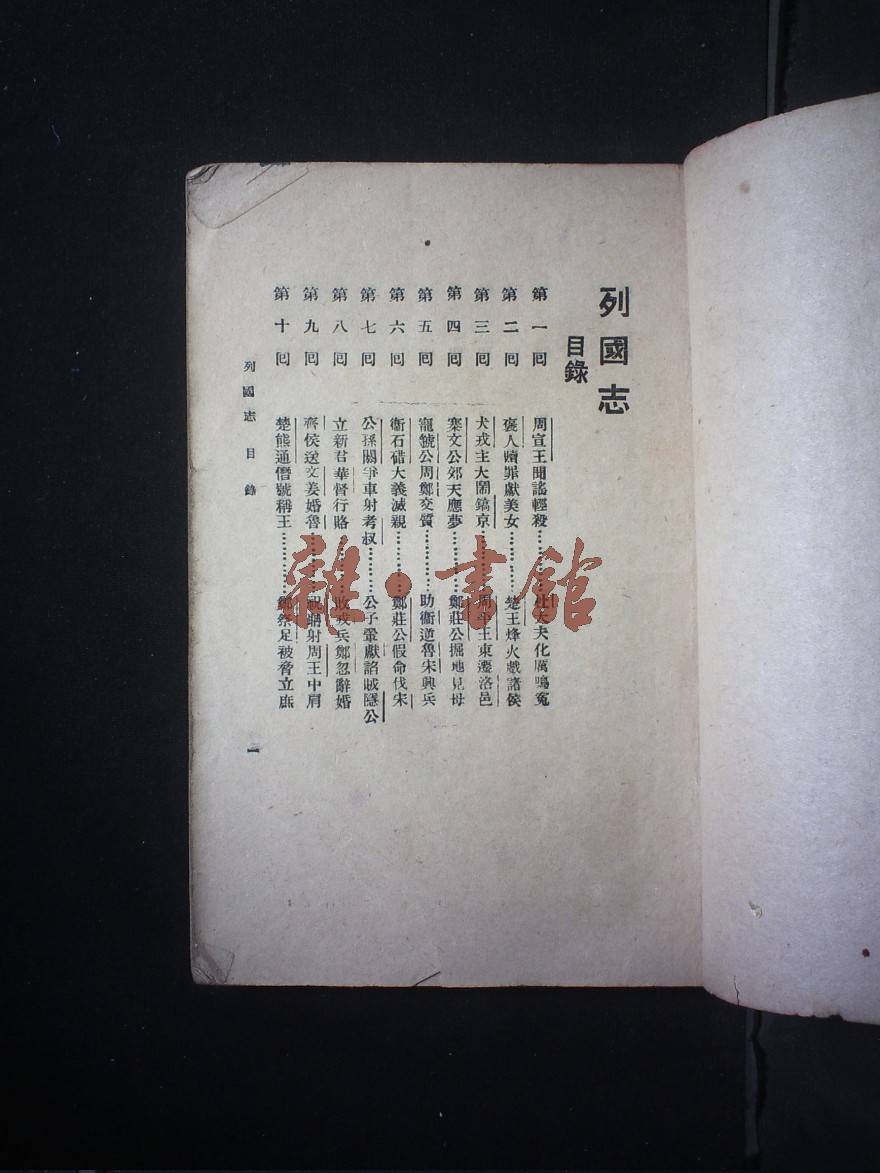 列國志
目錄
第一囘 周宣王聞謠輕殺………杜大夫化厲鳴冤
第二囘 褒人贖罪獻美女………楚王烽火戲諸侯
第三囘 犬戎主大鬧鎬京………周平王東遷洛邑
第四囘 寨文公郊天應夢………鄭莊公掘地見母
第五囘 寵虢公周鄭交質………助衞逆魯宋興兵
第六囘 衞石碏大義滅親………鄭莊公假命伐宋
第七囘 公孫閼爭車射考叔………公子翬獻諂賊隱公
第八囘 立新君華督行賂………敗戎兵鄭忽辭婚
第九囘 齊侯送文姜婚魯………祝聃射周王中肩
第十囘 楚熊通僭號稱王………鄭祭足被脅立庶
列國志 目錄 一
雜·書館